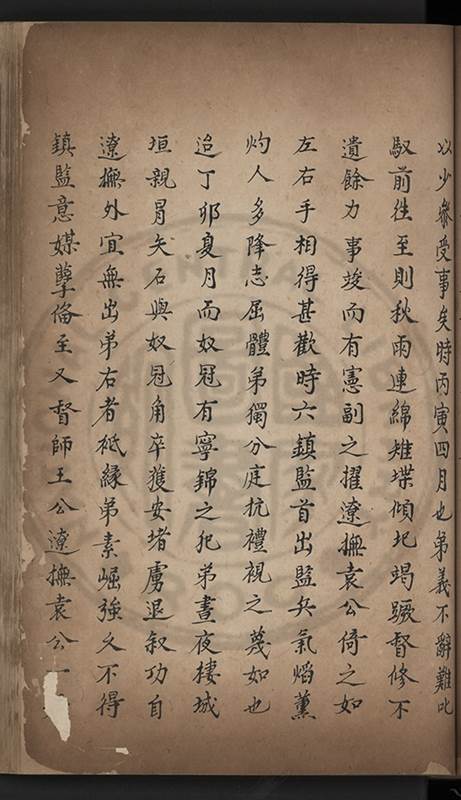 以少參受事矣時丙寅四月也弟義不辭難叱
馭前徃至則秋雨連綿雉堞傾圮竭蹶督修不
遺餘力事竣而有憲副之擢遼撫袁公倚之如
左右手相得甚歡時六鎮監首出監兵氣焰薰
灼人多降志屈體弟獨分庭抗禮視之蔑如也
迨丁卯夏月而奴冦有寧錦之犯弟晝夜棲城
垣親冐矢石與奴冦角卒獲安堵虜退叙功自
遼撫外宜無出弟右者秪緣弟素崛強久不得
鎮監意媒孽倫至又督師王公遼撫袁公一